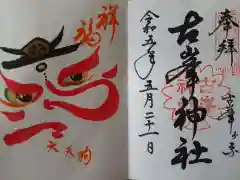 奉拝
古峯ヶ原
古峯神社
令和五年五月二十一日
祥福
大天狗